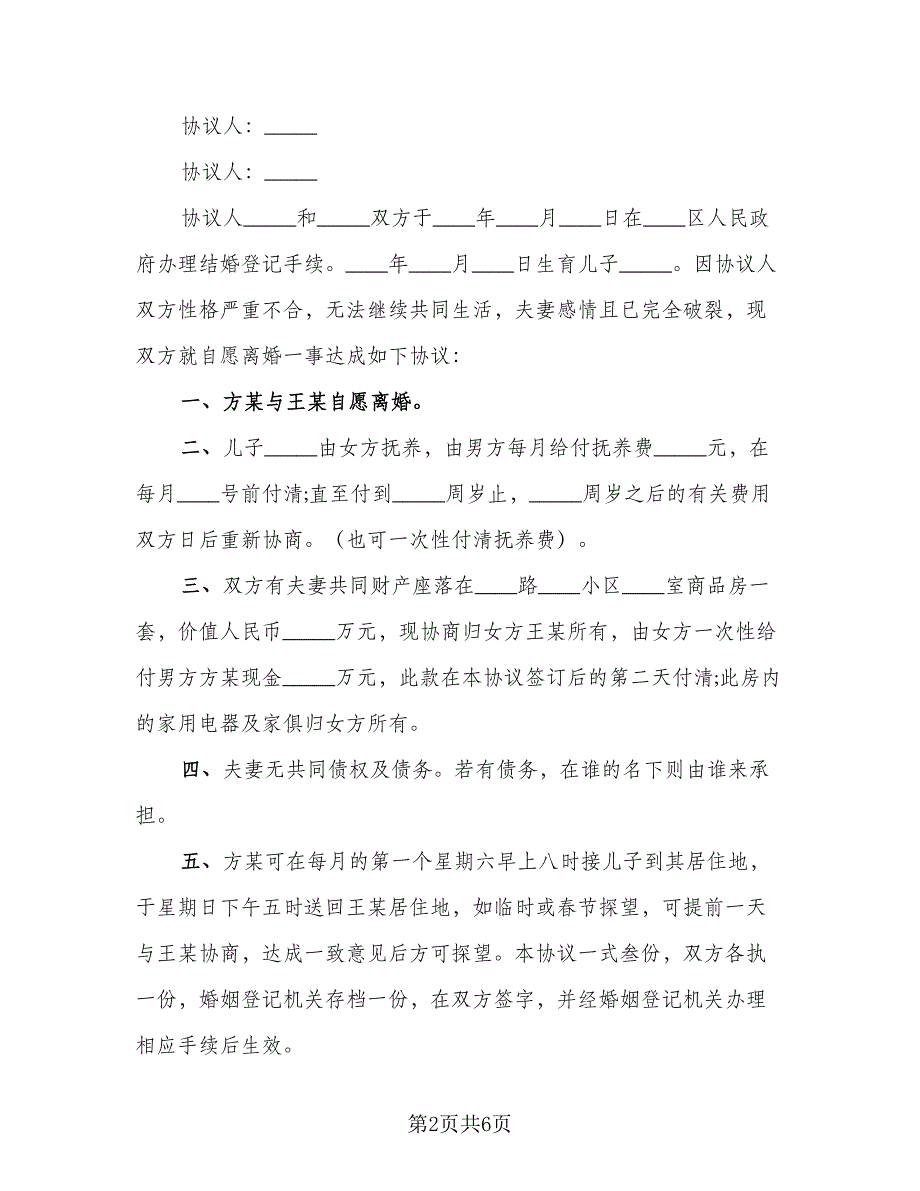 协议人：_____
协议人：_____
协议人_____和_____双方于____年____月____日在____区人民政
府办理结婚登记手续。____年____月____日生育儿子_____。因协议人
双方性格严重不合，无法继续共同生活，夫妻感情且已完全破裂，现
双方就自愿离婚一事达成如下协议：
一、方某与王某自愿离婚。
二、儿子_____由女方抚养，由男方每月给付抚养费_____元，在
每月____号前付清;直至付到_____周岁止，_____周岁之后的有关费用
双方日后重新协商。（也可一次性付清抚养费）。
三、双方有夫妻共同财产座落在____路____小区____室商品房一
套，价值人民币_____万元，现协商归女方王某所有，由女方一次性给
付男方方某现金_____万元，此款在本协议签订后的第二天付清;此房内
的家用电器及家俱归女方所有。
四、夫妻无共同债权及债务。若有债务，在谁的名下则由谁来承
担。
五、方某可在每月的第一个星期六早上八时接儿子到其居住地，
于星期日下午五时送回王某居住地，如临时或春节探望，可提前一天
与王某协商，达成一致意见后方可探望。本协议一式叁份，双方各执
一份，婚姻登记机关存档一份，在双方签字，并经婚姻登记机关办理
相应手续后生效。
第2页共6页